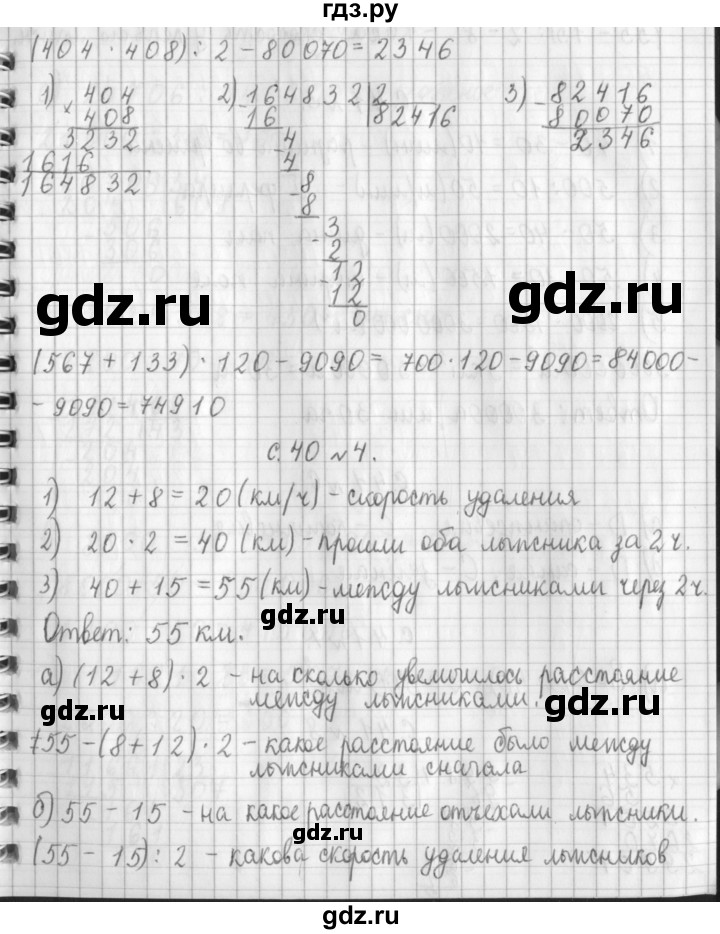 гдз.ру
(404 · 408) : 2 - 80070 = 2346
1) 404
× 408
3232
1616
164832
2) 164832 | 2
- 16 | 82416
4
- 4
8
- 8
3
- 2
12
- 12
0
3) 82416
- 80070
2346
gdz.ru
gdz.ru
(567 + 133) · 120 - 9090 = 700 · 120 - 9090 = 84000 -
- 9090 = 74910
с. 40 № 4.
1) 12 + 8 = 20 (км/ч) - скорость удаления
2) 20 · 2 = 40 (км) - прошли оба лыжника за 2 ч.
3) 40 + 15 = 55 (км) - между лыжниками через 2 ч.
gdz.ru
Ответ: 55 км.
а) (12 + 8) · 2 - на сколько увеличилось расстояние
между лыжниками.
gdz.ru
gdz.ru
55 - (8 + 12) · 2 - какое расстояние было между
лыжниками сначала
б) 55 - 15 - на какое расстояние отъехали лыжники.
gdz.ru
(55 - 15) : 2 - какова скорость удаления лыжников
gdz.ru